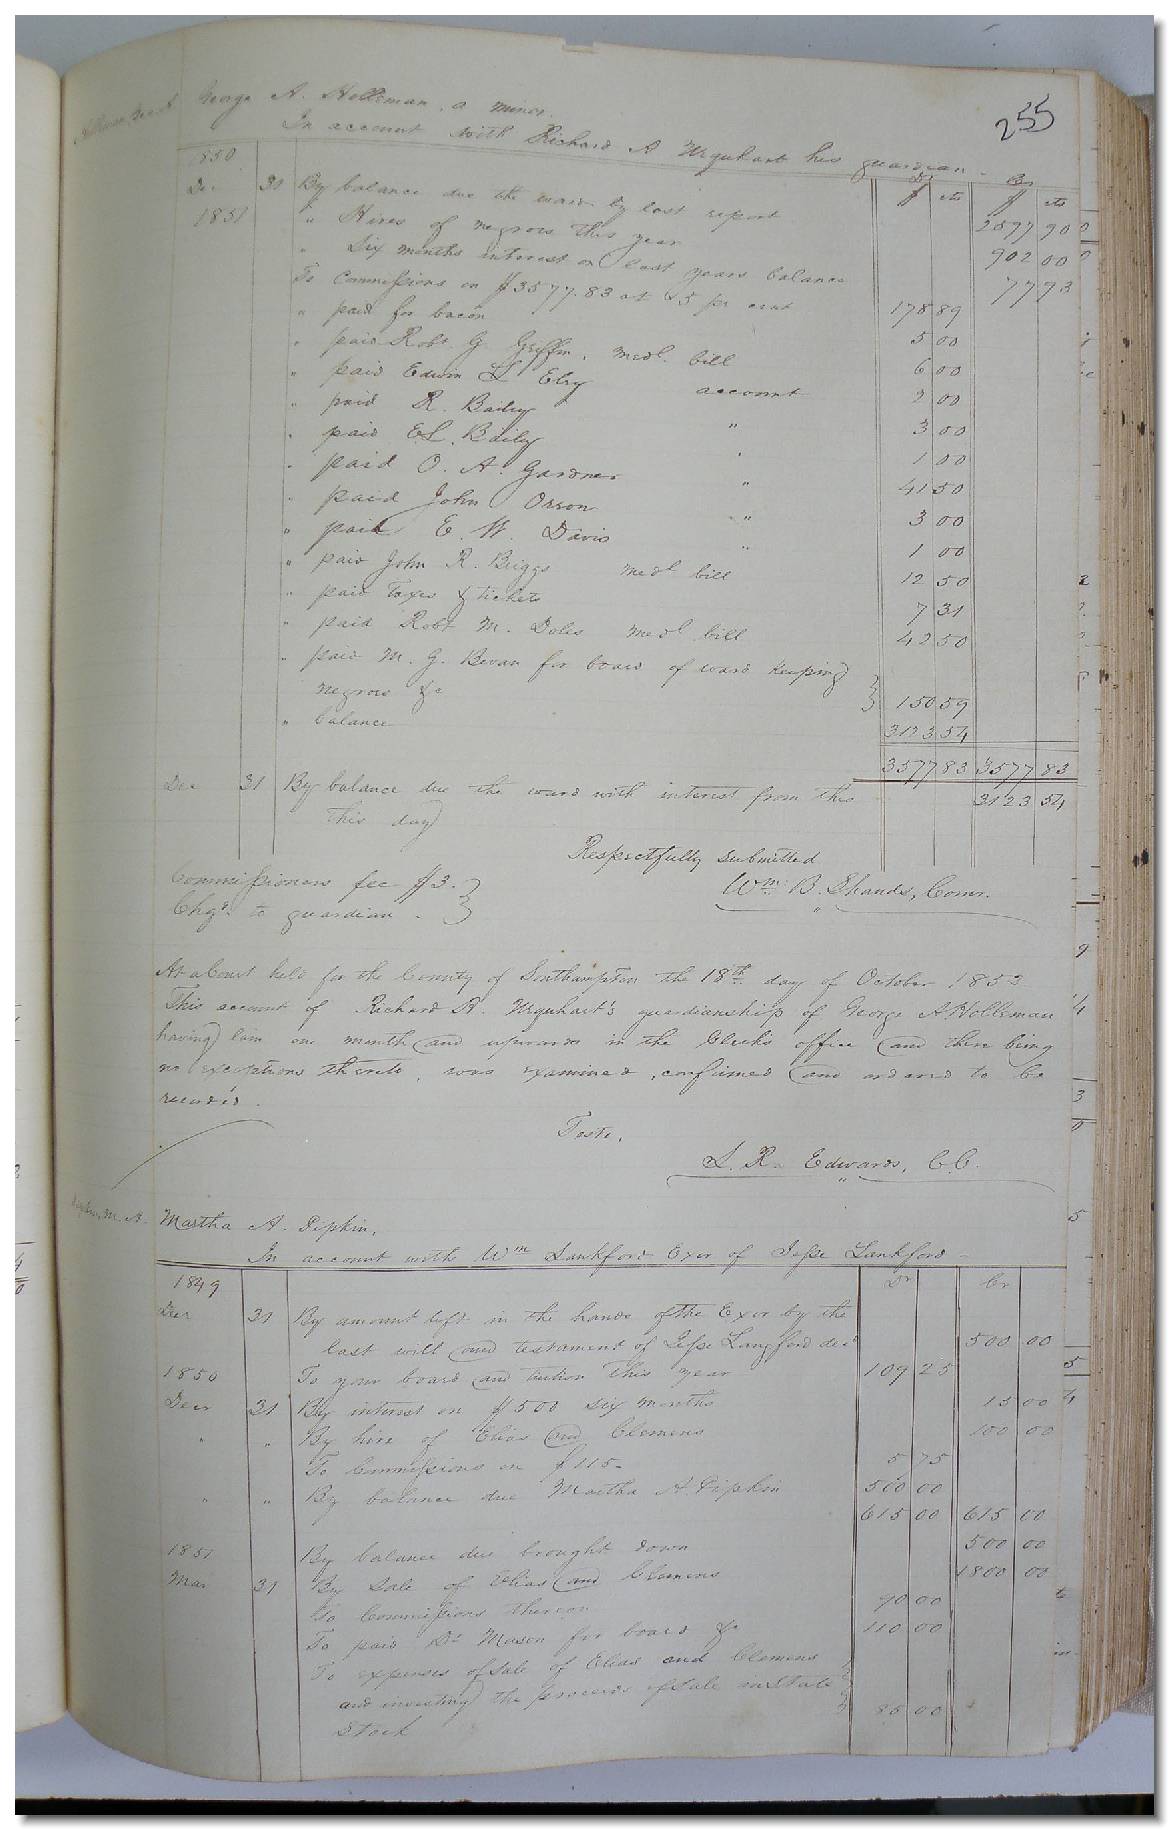 255
George A. Holleman, a minor.
In account with Richard A Urquhart his guardian.
1850 Dr Cr
$ cts $ cts
Dec 31 By balance due the ward by last report 2597 90
1851 " Hires of negroes this year 902 00
" Six months interest on last years balance 77 93
To Commissions on $3577.83 at 5 pr cent 178 89
" paid for bacon 5 00
" paid Robt. G. Griffin, medl. bill 6 00
" paid Edwin L Eley account 2 00
" paid R. Bailey " 3 00
" paid E L. Baily " 1 00
" paid O. A. Gardner " 41 50
" paid John Orson " 3 00
" paid E. W. Davis " 1 00
" paid John R. Briggs medl bill 12 50
" paid Taxes & tickets 7 31
" paid Robt M. Doles medl bill 42 50
" paid M. G. Bevan for board of ward keeping
negroes &c 150 59
" balance 3123 54
3577 83 3577 83
Dec 31 By balance due the ward with interest from this 3123 54
this day
Respectfully submitted
Wm. B. Shands, Comr.
Commissioners fee $3.
Chgd. to guardian.
At a Court held for the County of Southampton the 18th day of October 1853
This account of Richard A. Urquhart's guardianship of George A Holleman
having lain one month and upwards in the Clerk's office and there being
no exceptions thereto, was examined, confirmed and ordered to be
recorded.
Teste,
L. R. Edwards, C.C.
Pipkin, M. A.
Martha A. Pipkin,
In account with Wm Lankford Exor of Jesse Lankford
1849 Dr Cr
Decr 31 By amount left in the hands of the Exor by the
last will and testament of Jesse Langford decd 500 00
1850 To your board and tuition this year 109 25
Decr 31 By interest on $500 six months 15 00
" " By hire of Elias and Clemens 100 00
To Commissions on $115- 5 75
" " By balance due Martha A. Pipkin 500 00
615 00 615 00
1851 By balance due brought down 500 00
Mar 31 By Sale of Elias and Clemens 1800 00
To Commissions thereon 90 00
To paid Dr Mason for board &c 110 00
To expenses of sale of Elias and Clemens
and investing the proceeds of sale in State
Stock 86 00